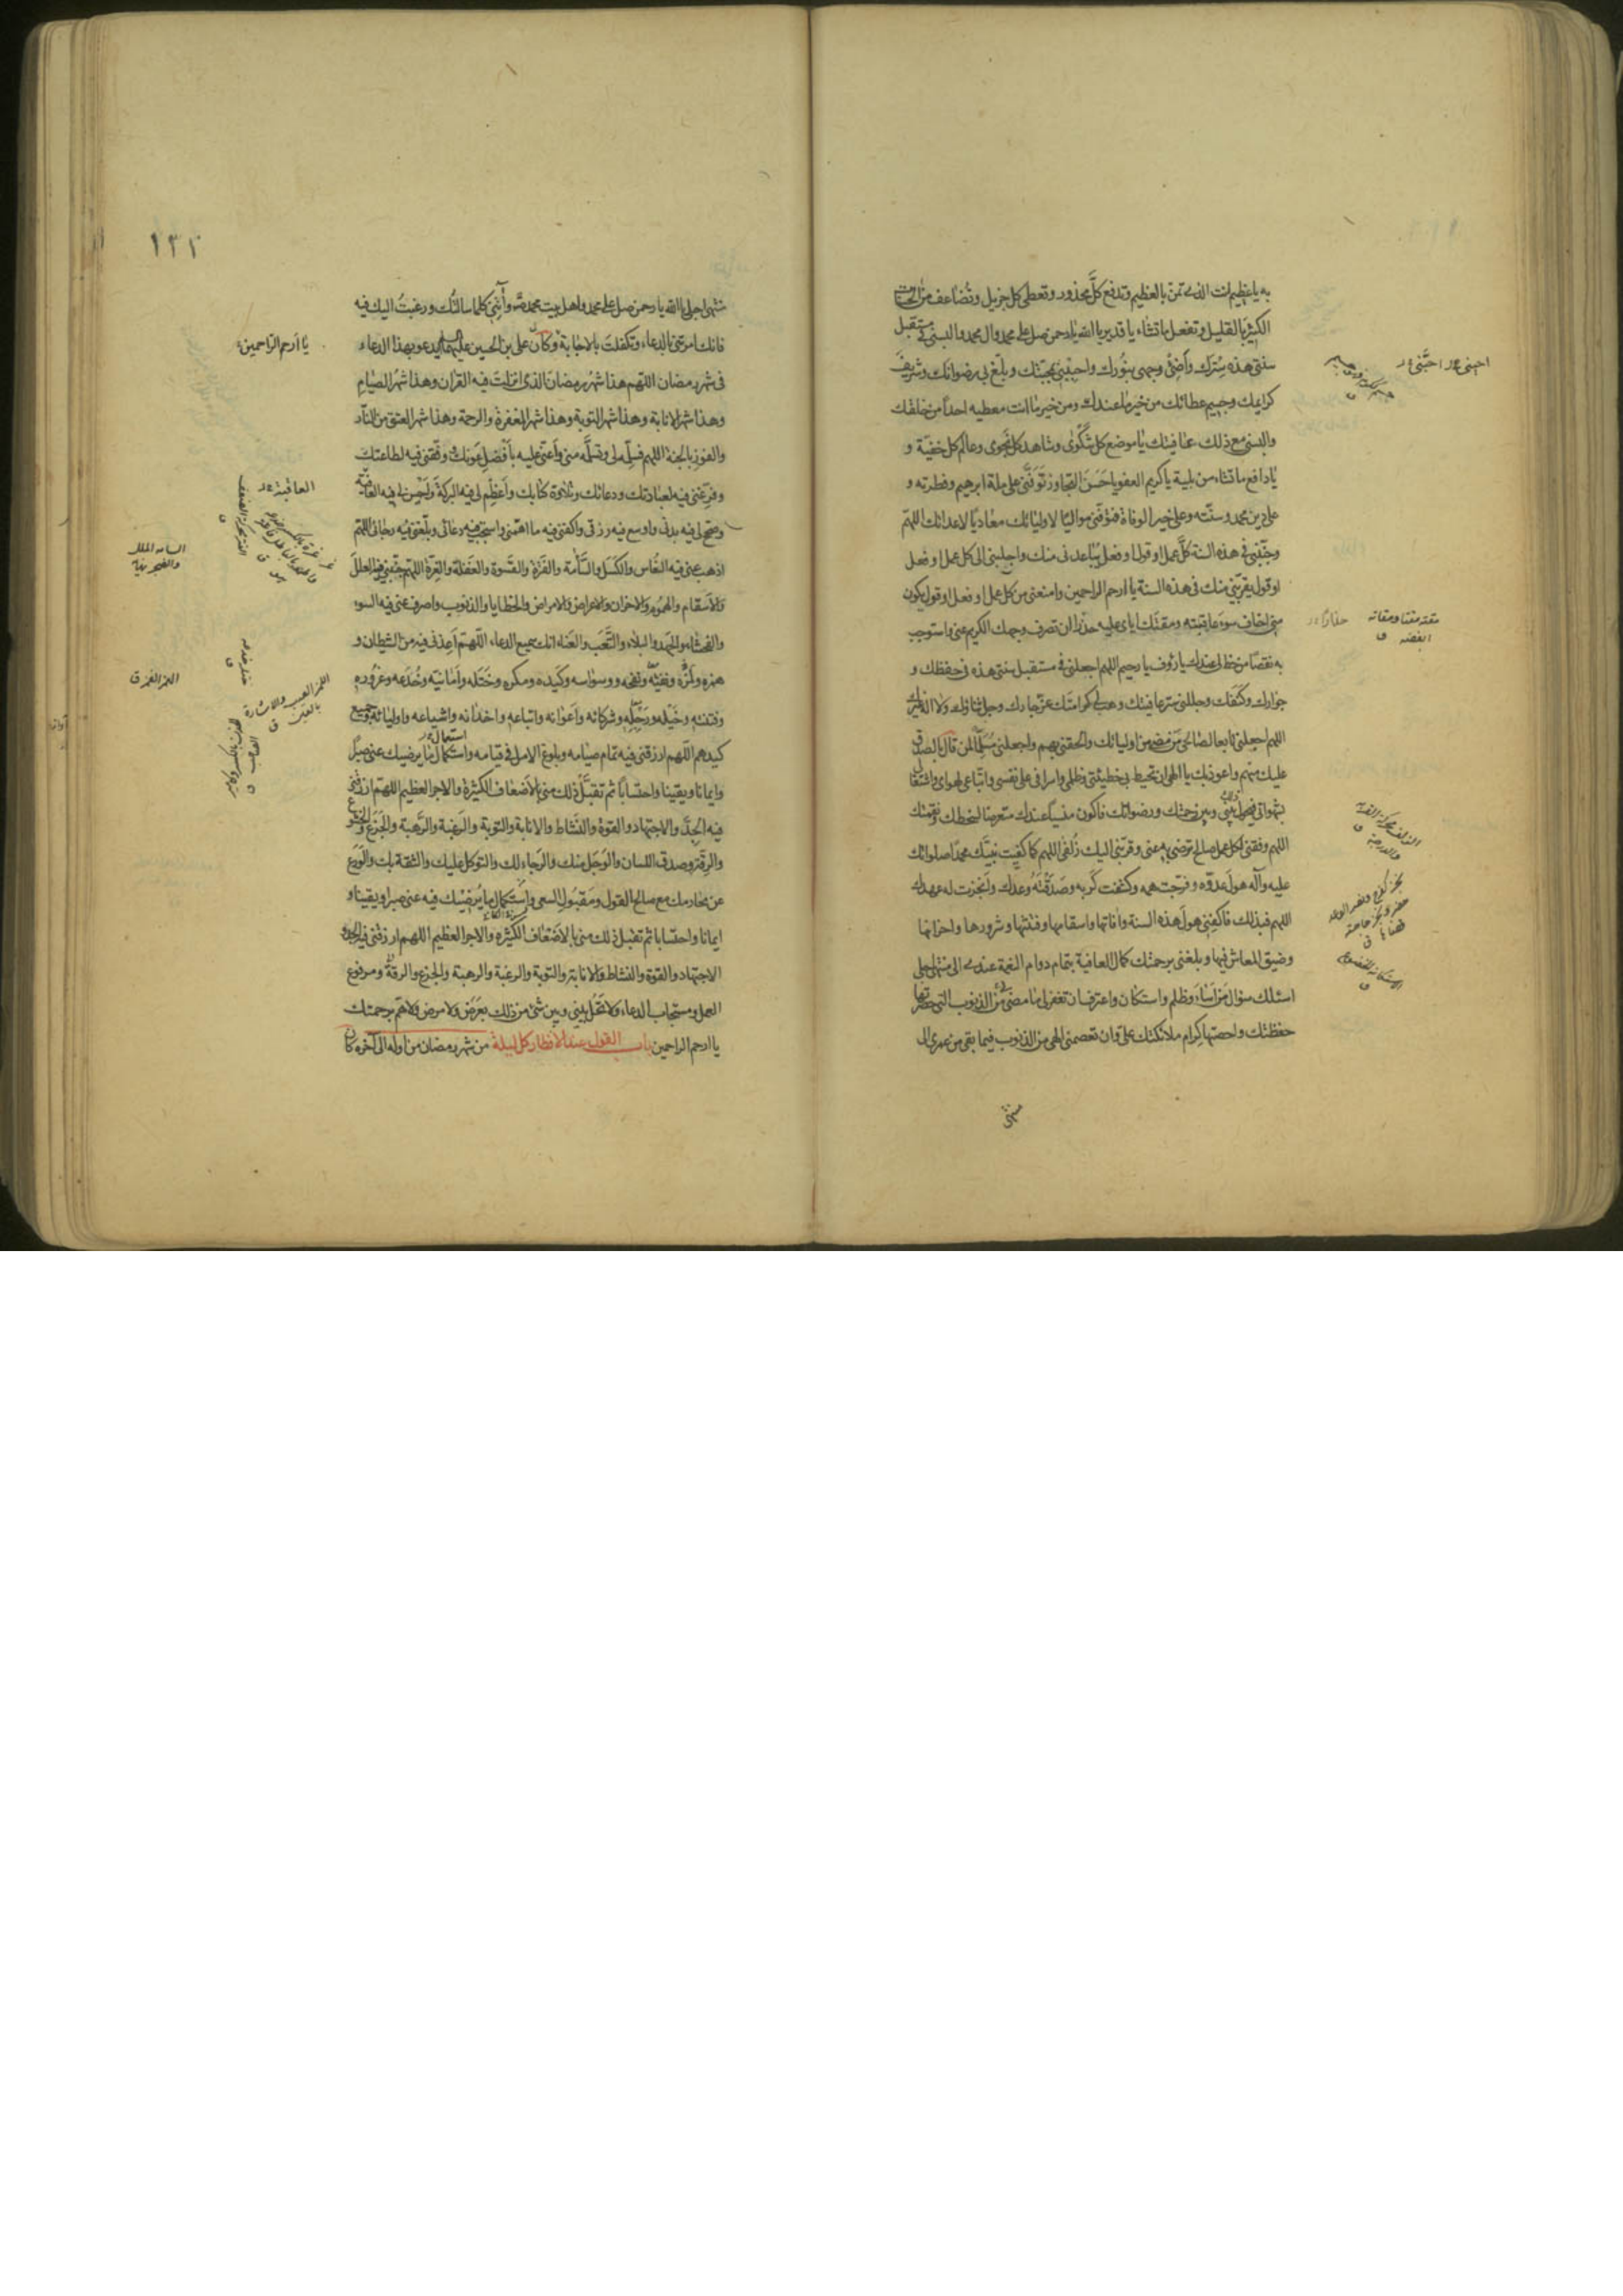 به يا عظيم انت الذى تمن بالعظيم وتدفع كلَّ محذور وتعطى كل جزيل وتُضاعف من الحسنات
الكثيرَ بالقليل وتفعل ما تشاء يا قدير يا الله يا رحمن صل على محمد وال محمد والبسنى فى مستقبل
سنتى هذه سِترَك وأضِئ وجهى بنُورك واحيِنى بمحبّتك وبلّغ بى رضوانك وشريفَ
كرامتك وجسيم عطائك من خير ما عندك ومن خير ما انت معطيه احداً من خلقك
والبسنى مع ذلك عافيتك يا موضع كل شكوى وشاهد كل نجوى وعالم كل خفيّة و
يا دافع ما تشاء من بلية يا كريم العفو يا حَسَنَ التجاوز تَوَفَّنى على ملة ابرهيم وفطرته و
على دين محمد وسنّته وعلى خير الوفاة فتوفّنى مواليًا لاوليائك معاديًا لاعدائك اللهمّ
وجنّبنى فى هذه السنة كُلَّ عمل او قول او فعل يُباعدنى منك واجلبنى الى كل عمل او فعل
او قول يقربّنى منك فى هذه السنة يا ارحم الراحمين وامنعنى من كل عمل او فعل او قول يكون
منى اخاف سوءَ عاقبته ومقتَك اياى عليه حذراً ان تصرف وجهك الكريم عنى واستوجب
به نقصًا من حظ لى عندك يا رؤف يا رحيم اللهم اجعلنى فى مستقبل سنتى هذه فى حفظك و
جوارك وكنَفك وجللنى ستر عافيتك وهب لى كرامتك عزّ جارك وجلّ ثناؤك ولا اله غيرك
اللهم اجعلنى تابعا لصالحى من مضى من اوليائك والحقنى بهم واجعلنى مُسَلِّمًا لمن قال بالصدق
عليك منهم واعوذ بك يا الهى ان تحيط بى خطيئتى وظلمى واسرافى على نفسى واتّباعى لهواى واشتغالى
بشهواتى فيحول ذلك بينى وبين رحمتك ورضوانك فاكون منسيًا عندك متعرضا لسخطك ونقمتك
اللهم وفقنى لكل عمل صالح ترضى به عنى وقرّبنى اليك زُلفى اللهم كما كفيت نبيّك محمدًا صلواتك
عليه وآله هولَ عدوّه وفرّجت همه وكشفت كَربه وصَدَقْتَهُ وعدك وانجزت له عهدك
اللهم فبذلك فاكفِنى هولَ هذه السنة وآفاتها واسقامها وفتنتها وشرورها واحزانها
وضيق المعاش فيها وبلغنى برحمتك كمال العافية بتمام دوام النعمة عندى الى منتهى اجلى
اسئلك سؤال من اساءَ وظلم واستكان واعترف ان تغفر لى ما مضى من الذنوب التى حصرتها
حفظتك واحصتها كرام ملائكتك علىّ وان تعصمنى الهى من الذنوب فيما بقى من عمرى الى
منتهى
احبنى
مقته مقتا ومقاتة
ابغضه ق
حذارًا
١٣٢
منتهى اجلى يا الله يا رحمن صل على محمد واهل بيت محمد وآتِنى كلما سالتُك ورغبتُ اليك فيه
فانك امرتنى بالدعاء وتكفلتَ بالاجابة وكان على بن الحسين عليهما السلام يدعو بهذا الدعاء
فى شهر رمضان اللّهم هذا شهر رمضان الذى انزلتَ فيه القرآن وهذا شهرُ الصيامِ
وهذا شهر الانابة وهذا شهر التوبة وهذا شهر المغفرة والرحمة وهذا شهر العتق من النار
والفوز بالجنة اللهم فسلّمه لى وتسلّمه منى وأعنّى عليه بأفضلِ عَونك ووفّقنى فيه لطاعتك
وفرّغنى فيه لعبادتك ودعائك وتلاوة كتابك وأعظِم لى فيه البركة وأحسن لى فيه العافية
وصحّ لى فيه بدنى واوسع فيه رزقى واكفنى فيه ما اهمّنى واستجب فيه دعائى وبلّغنى فيه رجائى اللهمّ
اذهب عنى فيه النعُاس والكَسَل والسَّأمة والفَترة والقَسوة والغَفلة والغِرّة اللهم جنّبنى فيه العلل
والاسقام والهموم والاحزان والاعراض والامراض والخطايا والذنوب واصرف عنى فيه السوء
والفحشاء والجهد والبلاء والتَّعَب والعناء انك سميع الدعاء اللّهمّ أعِذنى فيه من الشيطان و
همزه ولَمزه ونفثه ونفخه ووسواسه وكَيده ومكره وخَتله وأمانيّه وخُدَعه وغروره
وفتنته وخَيله ورَجِله وشركائه وأعوانه واتباعه واخدانه واشياعه واوليائه وجميع
كيدهم اللهم ارزقنى فيه تمام صيامه وبلوغ الامل فى قيامه واستكمال ما يرضيك عنى صبرًا
وايمانا ويقينا واحتسابًا ثم تقبّل ذلك منى بالاضعاف الكثيرة والاجر العظيم اللهمّ ارزقنى
فيه الجِدَّ والاجتهاد والقوة والنَشاط والانابة والتوبة والرَغبة والرَهبة والجَزَع والخشوع
والرقّة وصدق اللسان والوَجَل منك والرجاء لك والتوكل عليك والثقة بك والوَرَع
عن محارمك مع صالح القول ومَقبُول السعى واستكمال ما يُرضيك فيه عنى صبرا ويقينا و
ايمانا واحتسابا ثم تقبل ذلك منى بالاضعاف الكثيرة والاجر العظيم اللهم ارزقنى فيه الجد و
الاجتهاد والقوة والنشاط والانابة والتوبة والرغبة والرهبة والجزع والرقة ومرفوع
العمل ومستجاب الدعاء ولا تَحُل بينى وبين شئ من ذلك بعَرَض ولا مرض ولا هَمّ برحمتك
يا ارحم الراحمين باب القول عند الافطار كل ليلة من شهر رمضان من اوله الى آخره كان
يا أرحم الراحمين
العافية
اللمز العيب والاشارة
بالعين ق